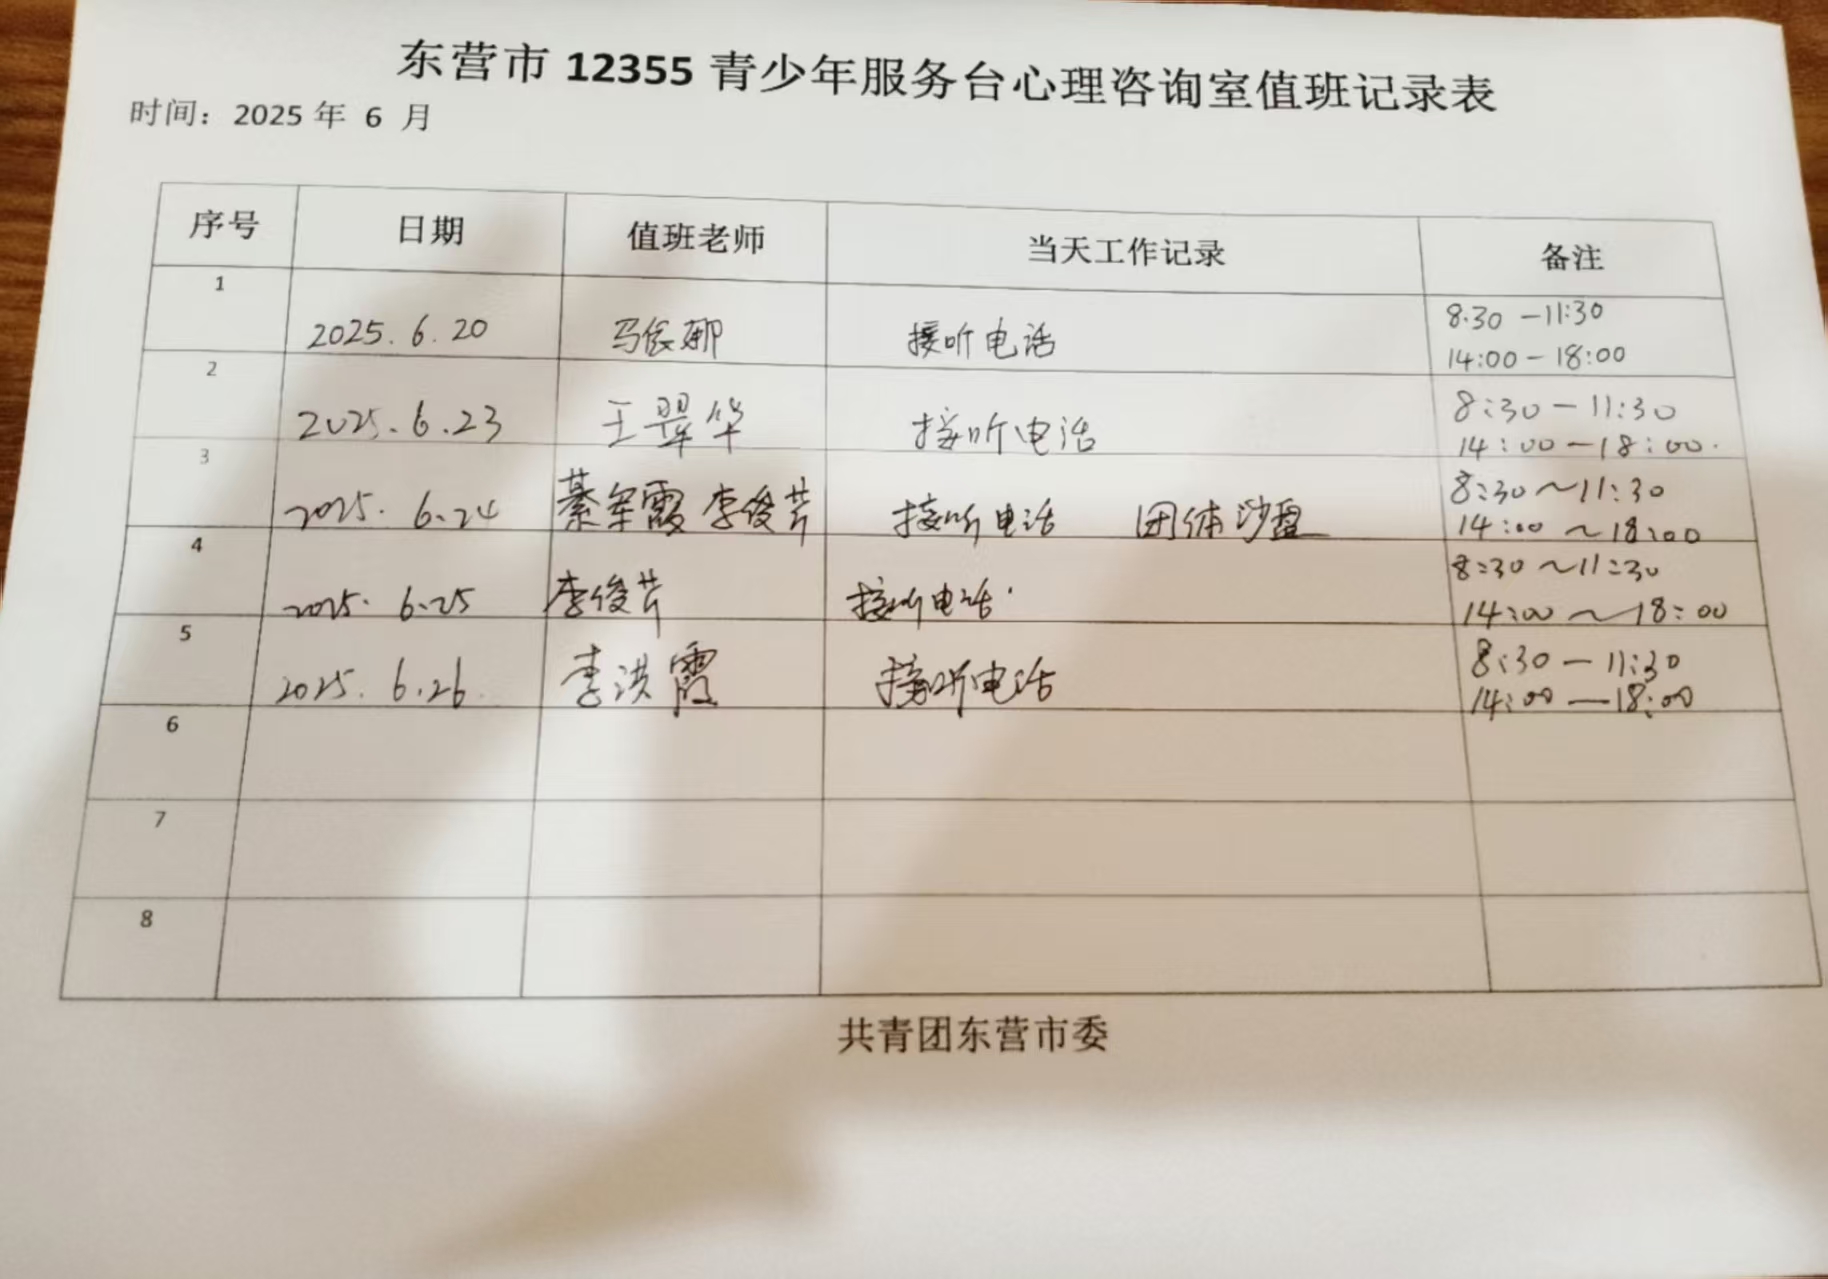 东营市 12355 青少年服务台心理咨询室值班记录表
时间：2025 年 6 月
序号 日期 值班老师 当天工作记录 备注
1 2025.6.20 马依娜 接听电话 8:30 -11:30
14:00-18:00
2 2025.6.23 王翠华 接听电话 8:30-11:30
14:00-18:00.
3 2025.6.24 綦军霞 李俊芹 接听电话 团体沙盘 8:30~11:30
14:00~18:00
4 2025.6.25 李俊芹 接听电话. 8:30~11:30
14:00~18:00
5 2025.6.26. 李洪霞 接听电话 8:30-11:30
14:00-18:00
6
7
8
共青团东营市委